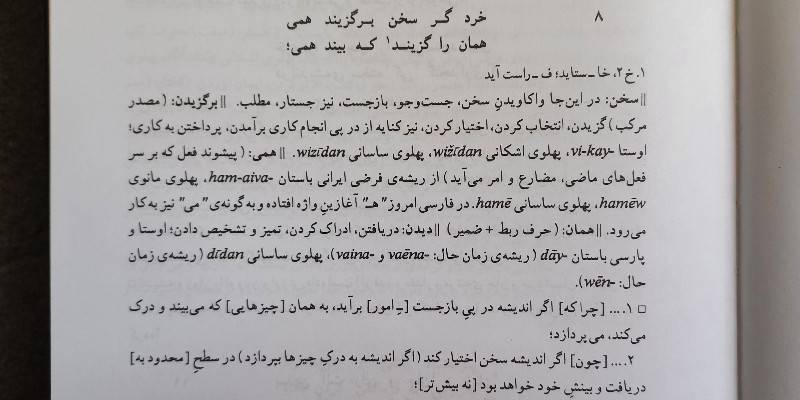 ۸ خرد گر سخن برگزیند همی
همان را گزیند۱ که بیند همی؛
۱. خ ۲، خا ـ ستاید؛ ف ـ راست آید
||سخن: در این‌جا واکاویدنِ سخن، جست‌وجو، بازجست، نیز جستار، مطلب. ||برگزیدن: (مصدر
مرکب) گزیدن، انتخاب کردن، اختیار کردن، نیز کنایه از در پی انجام کاری برآمدن، پرداختن به کاری؛
اوستا vi-kay-، پهلوی اشکانی wižīdan، پهلوی ساسانی wizīdan. ||همی: (پیشوند فعل که بر سر
فعل‌های ماضی، مضارع و امر می‌آید) از ریشه‌ی فرضی ایرانی باستان ham-aiva-، پهلوی مانوی
hamēw، پهلوی ساسانی hamē. در فارسی امروز "هـَ" آغازینِ واژه افتاده و به گونه‌ی "می" نیز به کار
می‌رود. ||همان: (حرف ربط + ضمیر) ||دیدن: دریافتن، ادراک کردن، تمیز و تشخیص دادن؛ اوستا و
پارسی باستان dāy- (ریشه‌ی زمان حال: vaēna- و vaina-)، پهلوی ساسانی dīdan (ریشه‌ی زمان
حال: wēn-).
□ ۱. ... [چرا که] اگر اندیشه در پیِ بازجست [ـِ امور] برآید، به همان [چیزهایی] که می‌بیند و درک
می‌کند، می‌پردازد؛
۲. ... [چون] اگر اندیشه سخن اختیار کند (اگر اندیشه به درکِ چیزها بپردازد) در سطحِ [محدود به]
دریافت و بینشِ خود خواهد بود [نه بیش‌تر]؛